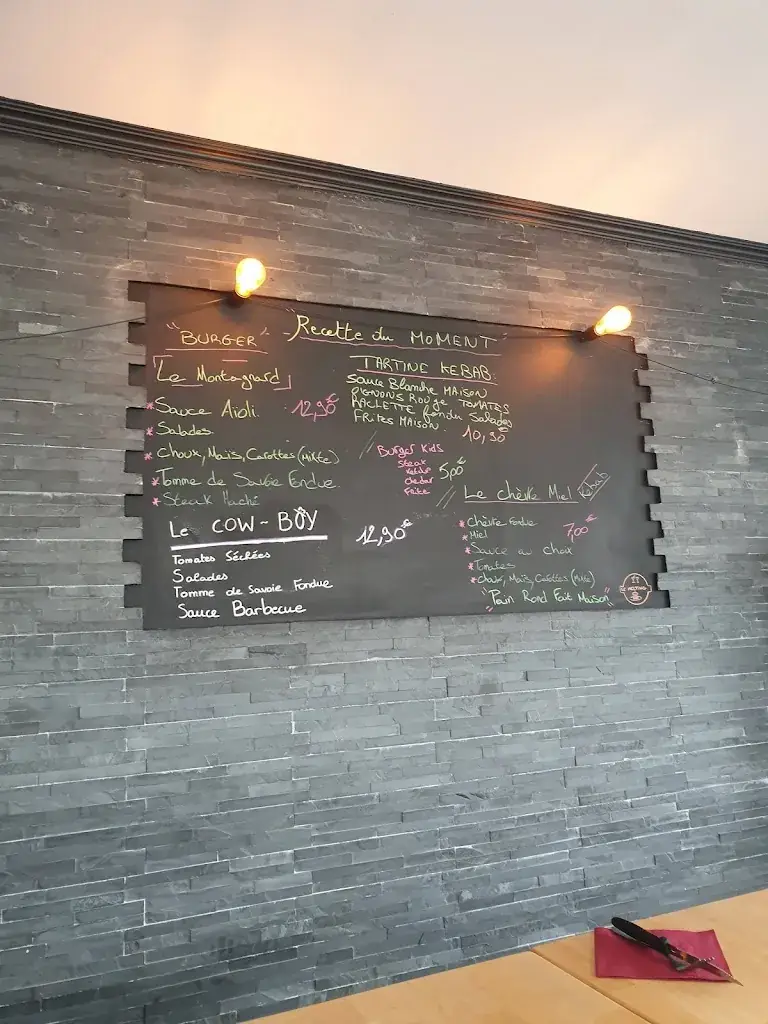 "BURGER" - Recette du MOMENT
Le Montagnard
* Sauce Aïoli 12,90€
* Salades
* Choux, Maïs, Carottes (Mixte)
* Tomme de Savoie Fondue
* Steak Haché
Le COW-BOY 12,90€
Tomates Séchées
Salades
Tomme de Savoie Fondue
Sauce Barbecue
TARTINE KEBAB
Sauce Blanche MAISON
OIGNONS ROUGE TOMATES
RACLETTE fondu Salades
FRITES MAISON. 10,90€
Burger Kids
Steak
cheddar
Frite
5,00€
Le chèvre Miel Kebab
* Chèvre Fondue
* Miel 7,00€
* Sauce au choix
* Tomates
* Choux, Maïs, Carottes (Mixte)
"Pain Rond Fait Maison"